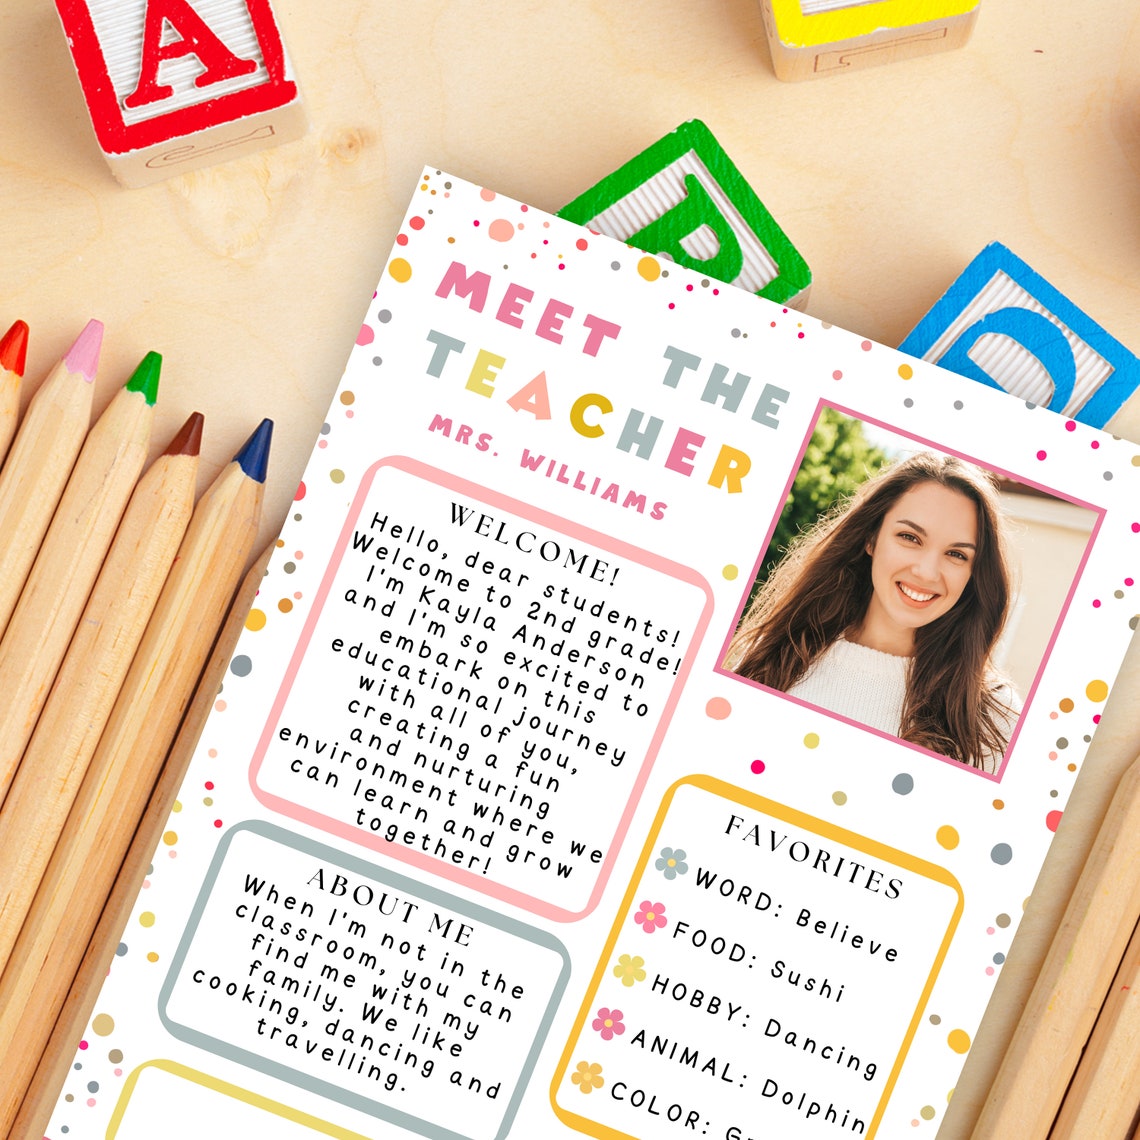 A
MEET THE
TEACHER
MRS. WILLIAMS
WELCOME!
Hello, dear students!
Welcome to 2nd grade!
I'm Kayla Anderson
and I'm so excited to
embark on this
educational journey
with all of you,
creating a fun
and nurturing
environment where we
can learn and grow
together!
ABOUT ME
When I'm not in the
classroom, you can
find me with my
family. We like
cooking, dancing and
travelling.
FAVORITES
WORD: Believe
FOOD: Sushi
HOBBY: Dancing
ANIMAL: Dolphin
COLOR: